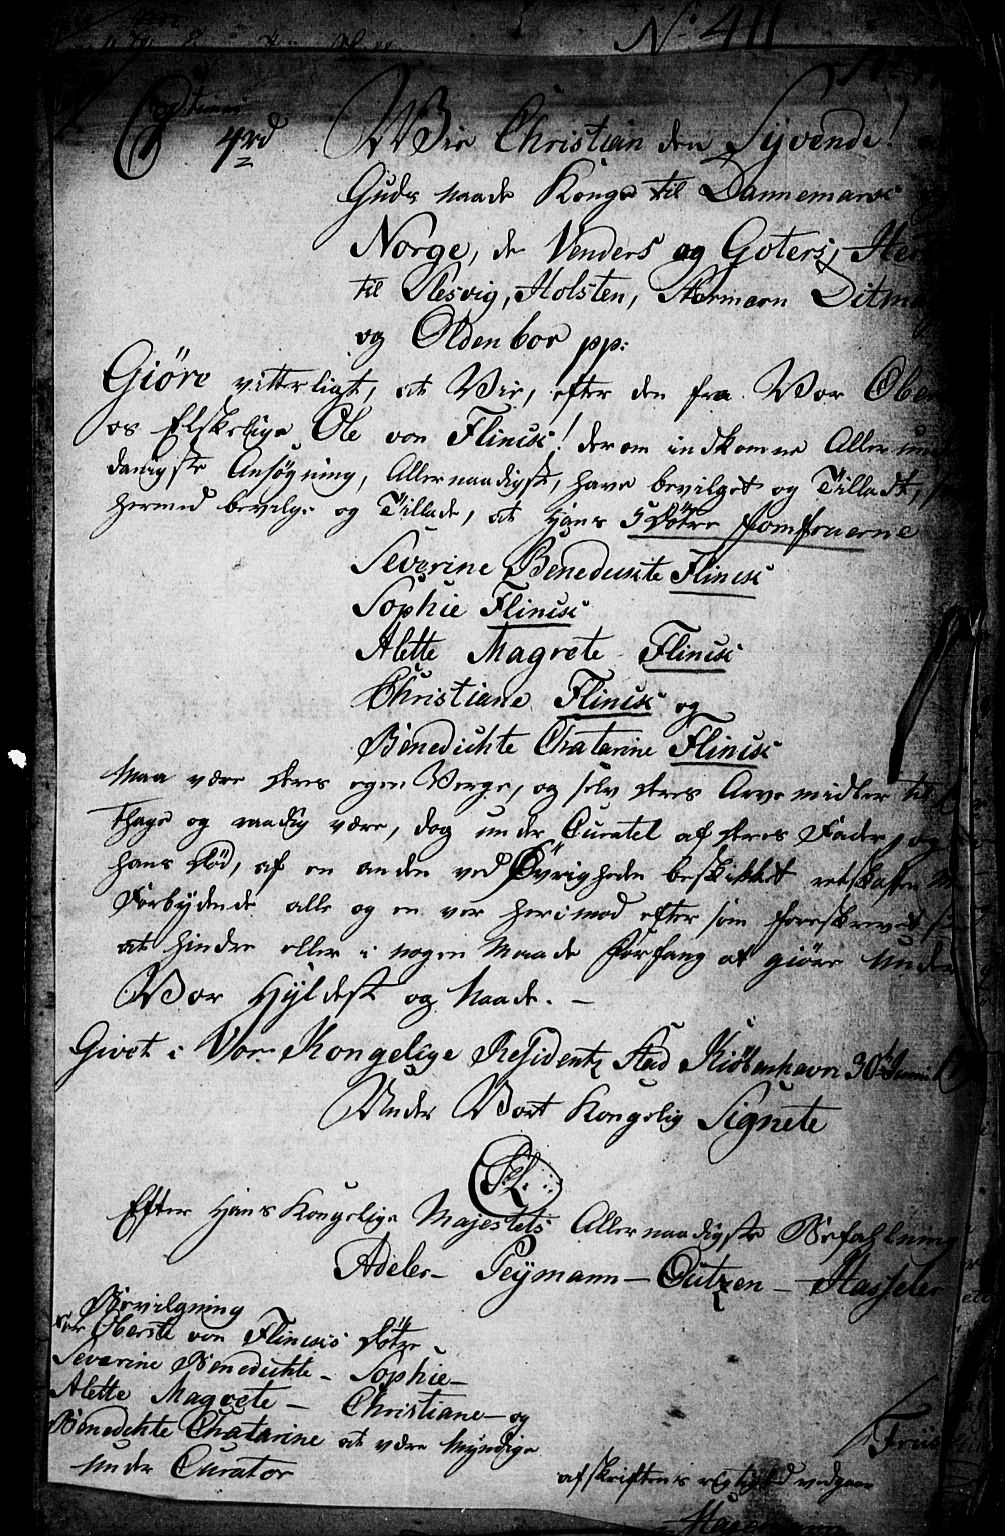 No 411
4rd
Wir Christian den Syvende!
Guds Naade Konge til Dannemark
Norge, de Venders og Goters,
til Slesvig, Holsten, Stormarn
og Oldenbor pp:
Giöre vitterligt, at Vir, efter den fra Vor
os Elskelige Ole von Flinck! derom indkomne
danigste Ansøgning, Allernaadigst, have bevilget og Tilladt,
hermed bevilge og Tillade, at hans 5 Døtre Jomfruerne
Severine Benedickte Flinck
Sophie Flinck
Alette Magrete Flinck
Christiane Flinck og
Benedichte Chatarine Flinck
Maa være deres egen Verge, og selv deres Arve midler til
Thage og raadig være, dog under Curatel af deres Fader, og
hans Død, af en anden ved Øvrigheden beskikket retskaffen
Forbydende alle og en ver herimod efter som foreskrevet
at hindre eller i nogen Maade Forfang at giöre Under
Vor Hyldest og Naade. –
Givet i Vor Kongelige Residentz Stad Kiöbenhavn 30t Juni
Under Vort Kongelig Signete
Efter Hans Kongelige Majestets Allernaadigste Befahlning
Adeler – Peymann – Cutzen –
Bevilgning
for Oberste von Flincks Døtre
Severine Benedichte – Sophie –
Alette Magrete – Christiane – og
Benedichte Chatarine at være Myndige
Under Curator
afskriftens rigtighed